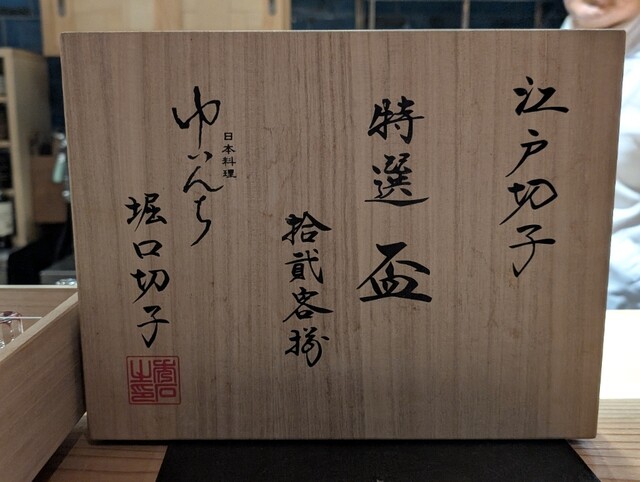 江戸切子
特選 盃
拾貳客揃
日本料理
ゆいんち
堀口切子